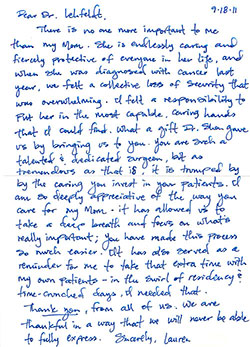 9-18-11
Dear Dr. Lehfeldt,
There is no one more important to me
than my Mom. She is endlessly caring and
fiercely protective of everyone in her life, and
when she was diagnosed with cancer last
year, we felt a collective loss of security that
was overwhelming. I felt a responsibility to
put her in the most capable, caring hands
that I could find. What a gift Dr. Shon gave
us by bringing us to you. You are such a
talented & dedicated surgeon, but as
tremendous as that is, it is trumped by
by the caring you invest in your patients. I
am so deeply appreciative of the way you
care for my Mom - it has allowed us to
take a deep breath and focus on what's
really important; you have made this process
so much easier. It has also served as a
reminder for me to take that extra time with
my own patients - in the swirl of residency &
time-crunched days, I needed that.
Thank you, from all of us. We are
thankful in a way that we will never be able
to fully express. Sincerely, Lauren